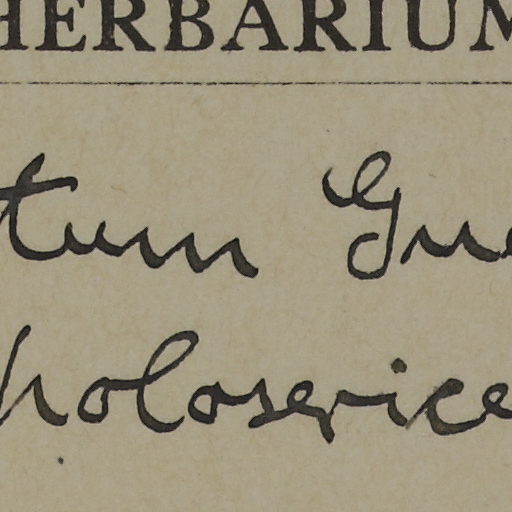 HERBARIUM
tum Gue
holoserice